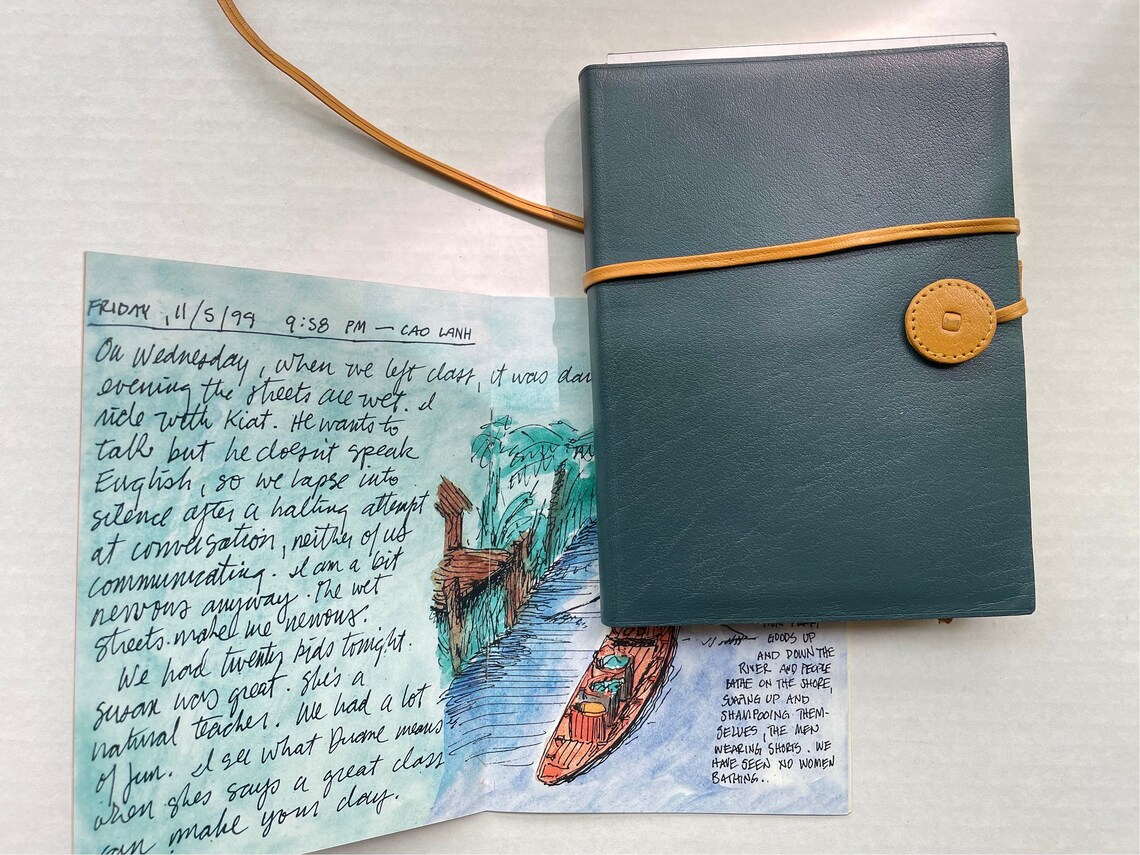 FRIDAY, 11/5/99 9:58 PM — CAO LANH
On Wednesday, when we left class, it was
evening the streets are wet. I
ride with Kiat. He wants to
talk but he doesn't speak
English, so we lapse into
silence after a halting attempt
at conversation, neither of us
communicating. I am a bit
nervous anyway. The wet
streets make me nervous.
We had twenty kids tonight.
Susan was great. She's a
natural teacher. We had a lot
of fun. I see what Duane means
when she says a great class
can make your day.
GOODS UP
AND DOWN THE
RIVER AND PEOPLE
BATHE ON THE SHORE,
SOAPING UP AND
SHAMPOOING THEM-
SELVES, THE MEN
WEARING SHORTS. WE
HAVE SEEN NO WOMEN
BATHING..